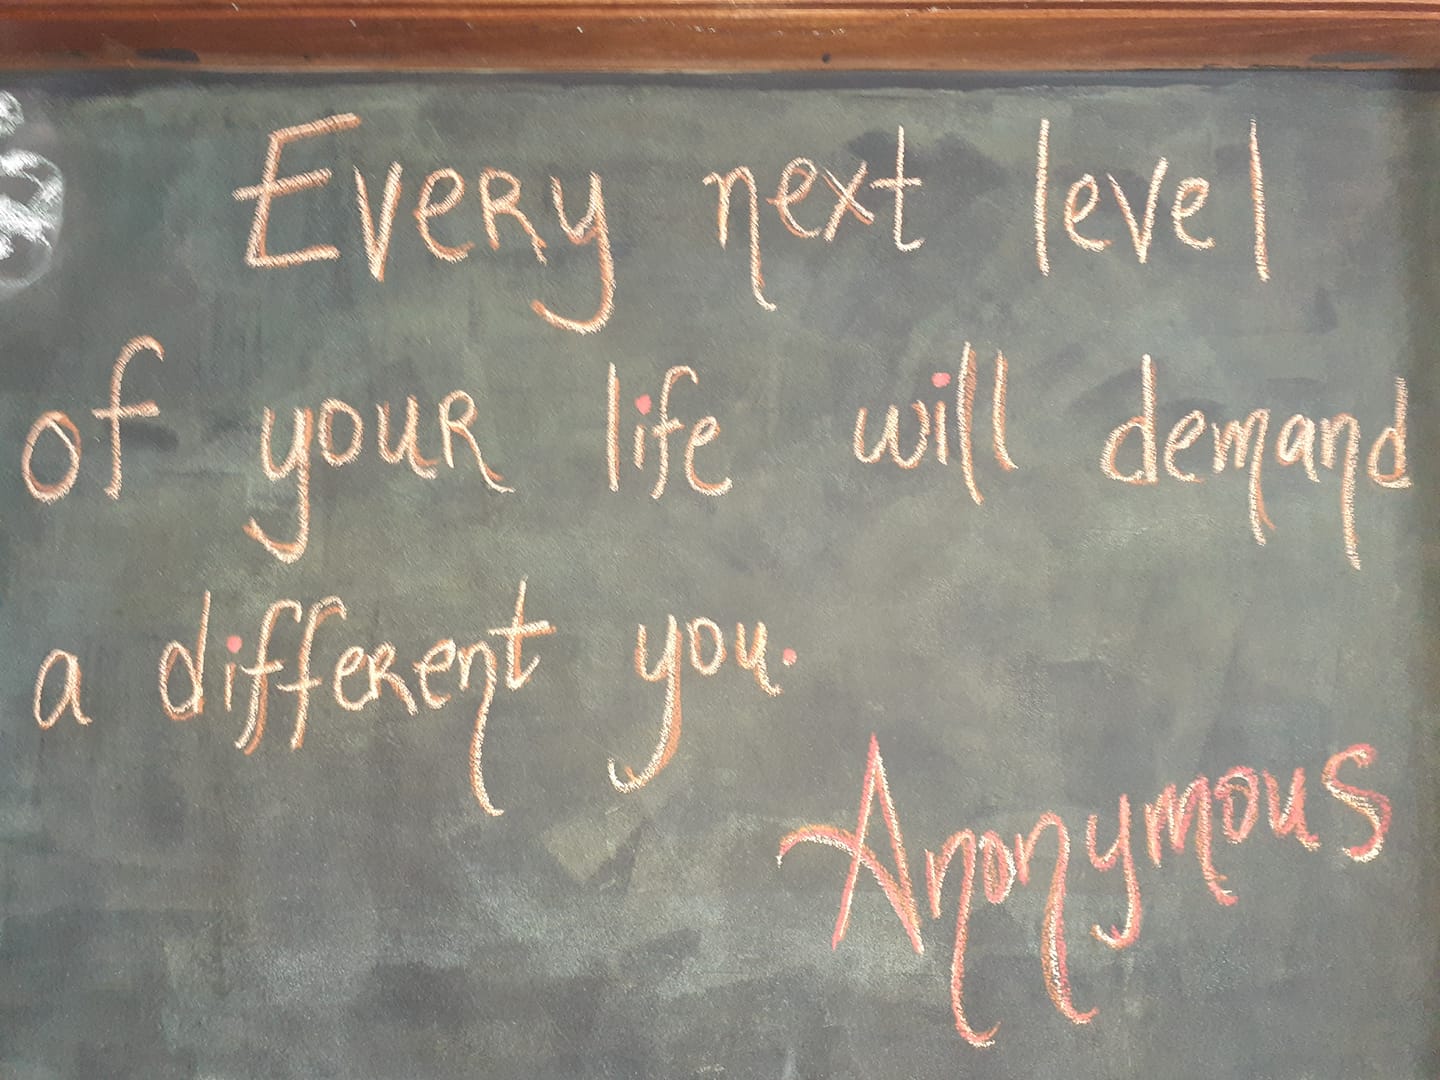 Every next level
of your life will demand
a different you.
Anonymous